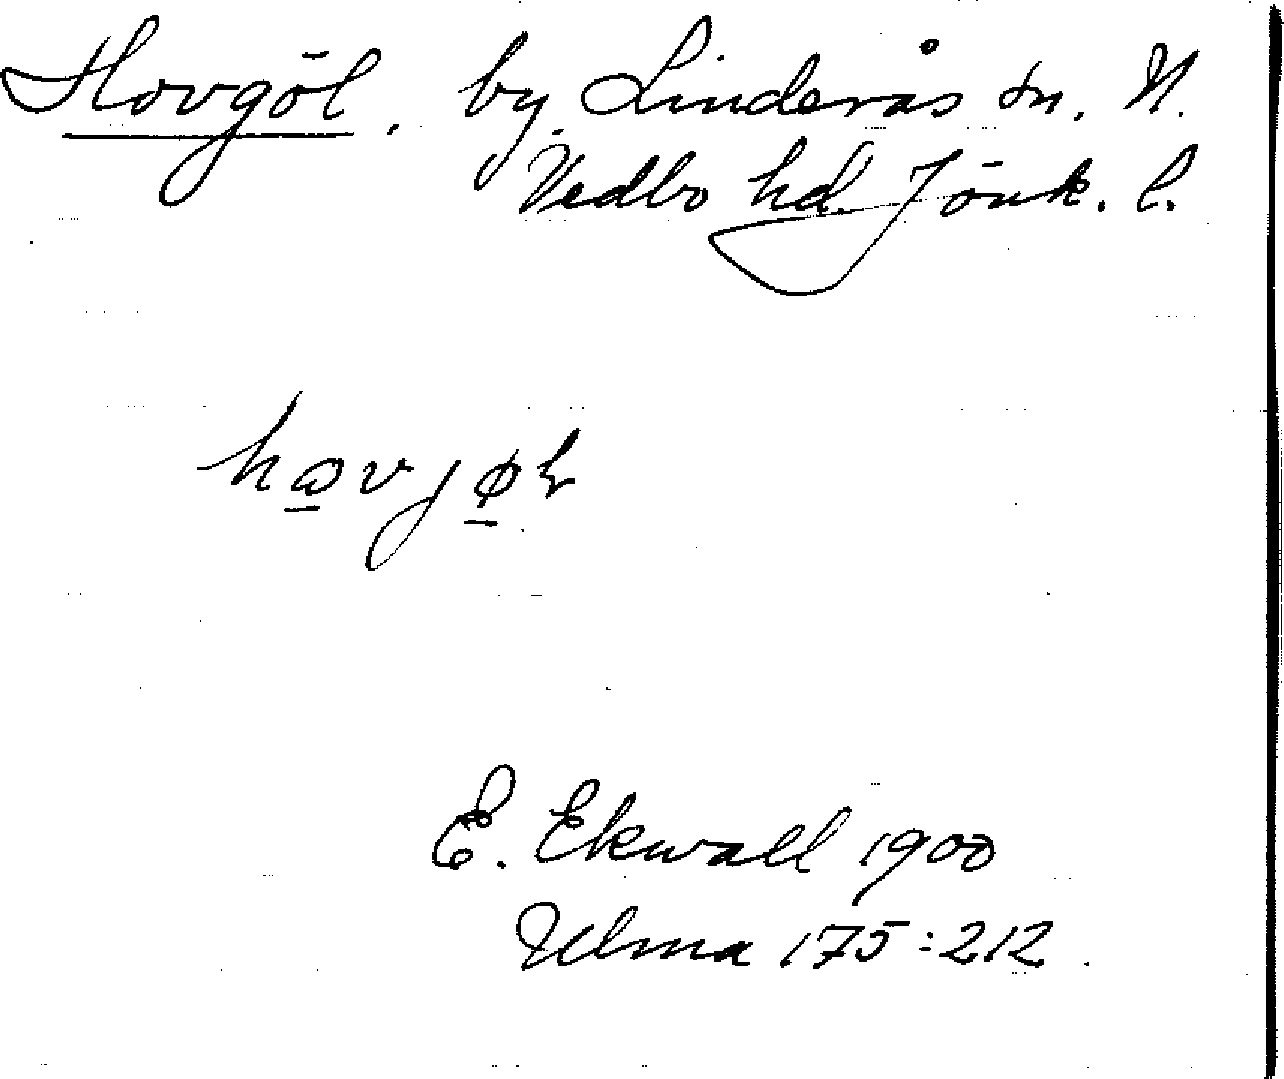 Hovgöl, by Linderås sn. N.
Vedbo hd. Jönk. l.
E. Ekwall 1900
Ulma 175:212.